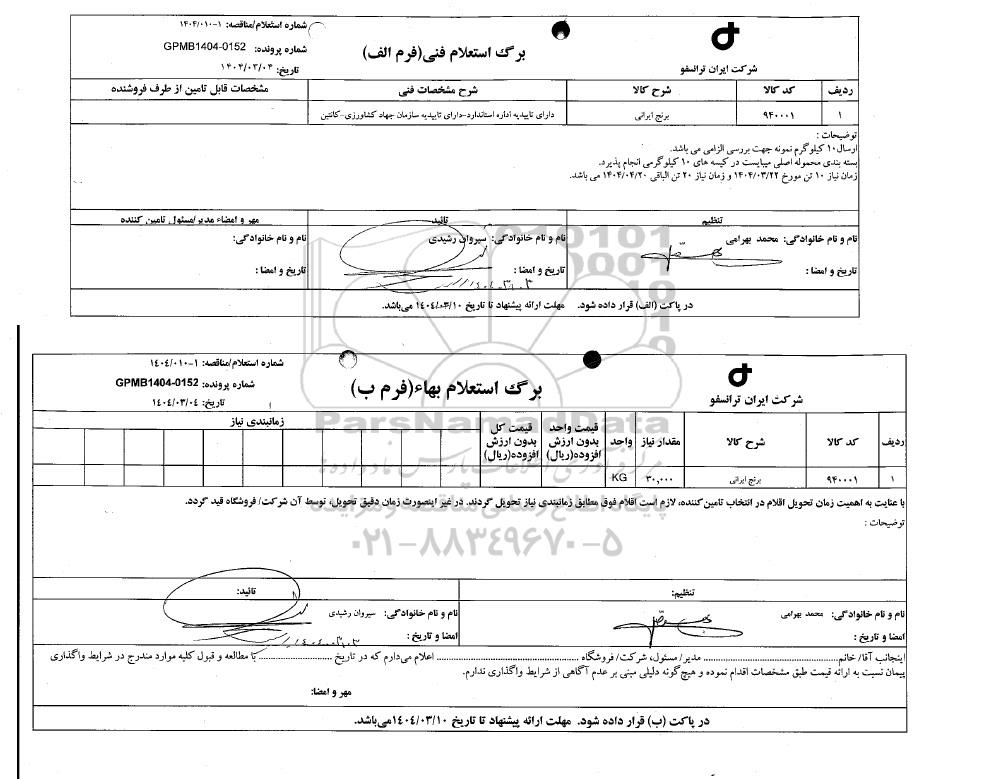 شرکت ایران ترانسفو
برگ استعلام فنی(فرم الف)
شماره استعلام/مناقصه: ۱-۱۴۰۴/۰۱۰
شماره پرونده: GPMB1404-0152
تاریخ: ۱۴۰۴/۰۳/۰۴
ردیف کد کالا شرح کالا شرح مشخصات فنی مشخصات قابل تامین از طرف فروشنده
۱ ۹۴۰۰۰۱ برنج ایرانی دارای تاییدیه اداره استاندارد-دارای تاییدیه سازمان جهاد کشاورزی-کانتین
توضیحات :
ارسال۱۰ کیلوگرم نمونه جهت بررسی الزامی می باشد.
بسته بندی محموله اصلی میبایست در کیسه های ۱۰ کیلوگرمی انجام پذیرد.
زمان نیاز ۱۰ تن مورخ ۱۴۰۴/۰۳/۲۲ و زمان نیاز ۲۰ تن الباقی ۱۴۰۴/۰۴/۲۰ می باشد.
تنظیم تائید مهر و امضاء مدیر/مسئول تامین کننده
نام و نام خانوادگی: محمد بهرامی نام و نام خانوادگی: سیروان رشیدی نام و نام خانوادگی:
تاریخ و امضا : تاریخ و امضا : تاریخ و امضا :
در پاکت (الف) قرار داده شود. مهلت ارائه پیشنهاد تا تاریخ ۱۴۰۴/۰۳/۱۰ می‌باشد.
شرکت ایران ترانسفو
برگ استعلام بهاء(فرم ب)
شماره استعلام/مناقصه: ۱-۱۴۰۴/۰۱۰
شماره پرونده: GPMB1404-0152
تاریخ: ۱۴۰۴/۰۳/۰۴
ردیف کد کالا شرح کالا مقدار نیاز واحد قیمت واحد بدون ارزش افزوده(ریال) قیمت کل بدون ارزش افزوده(ریال) زمانبندی نیاز
۱ ۹۴۰۰۰۱ برنج ایرانی ۳۰,۰۰۰ KG
ParsNamadData
با عنایت به اهمیت زمان تحویل اقلام در انتخاب تامین‌کننده، لازم است اقلام فوق مطابق زمانبندی نیاز تحویل گردند. در غیر اینصورت زمان دقیق تحویل، توسط آن شرکت/ فروشگاه قید گردد.
توضیحات :
۰۲۱-۸۸۳۴۹۶۷۰-۵
تنظیم: تائید:
نام و نام خانوادگی: محمد بهرامی نام و نام خانوادگی: سیروان رشیدی
امضا و تاریخ : امضا و تاریخ :
اینجانب آقا/ خانم.......................... مدیر/ مسئول، شرکت/ فروشگاه .......................... اعلام می‌دارم که در تاریخ .......................... با مطالعه و قبول کلیه موارد مندرج در شرایط واگذاری
پیمان نسبت به ارائه قیمت طبق مشخصات اقدام نموده و هیچ‌گونه دلیلی مبنی بر عدم آگاهی از شرایط واگذاری ندارم.
مهر و امضا:
در پاکت (ب) قرار داده شود. مهلت ارائه پیشنهاد تا تاریخ ۱۴۰۴/۰۳/۱۰می‌باشد.